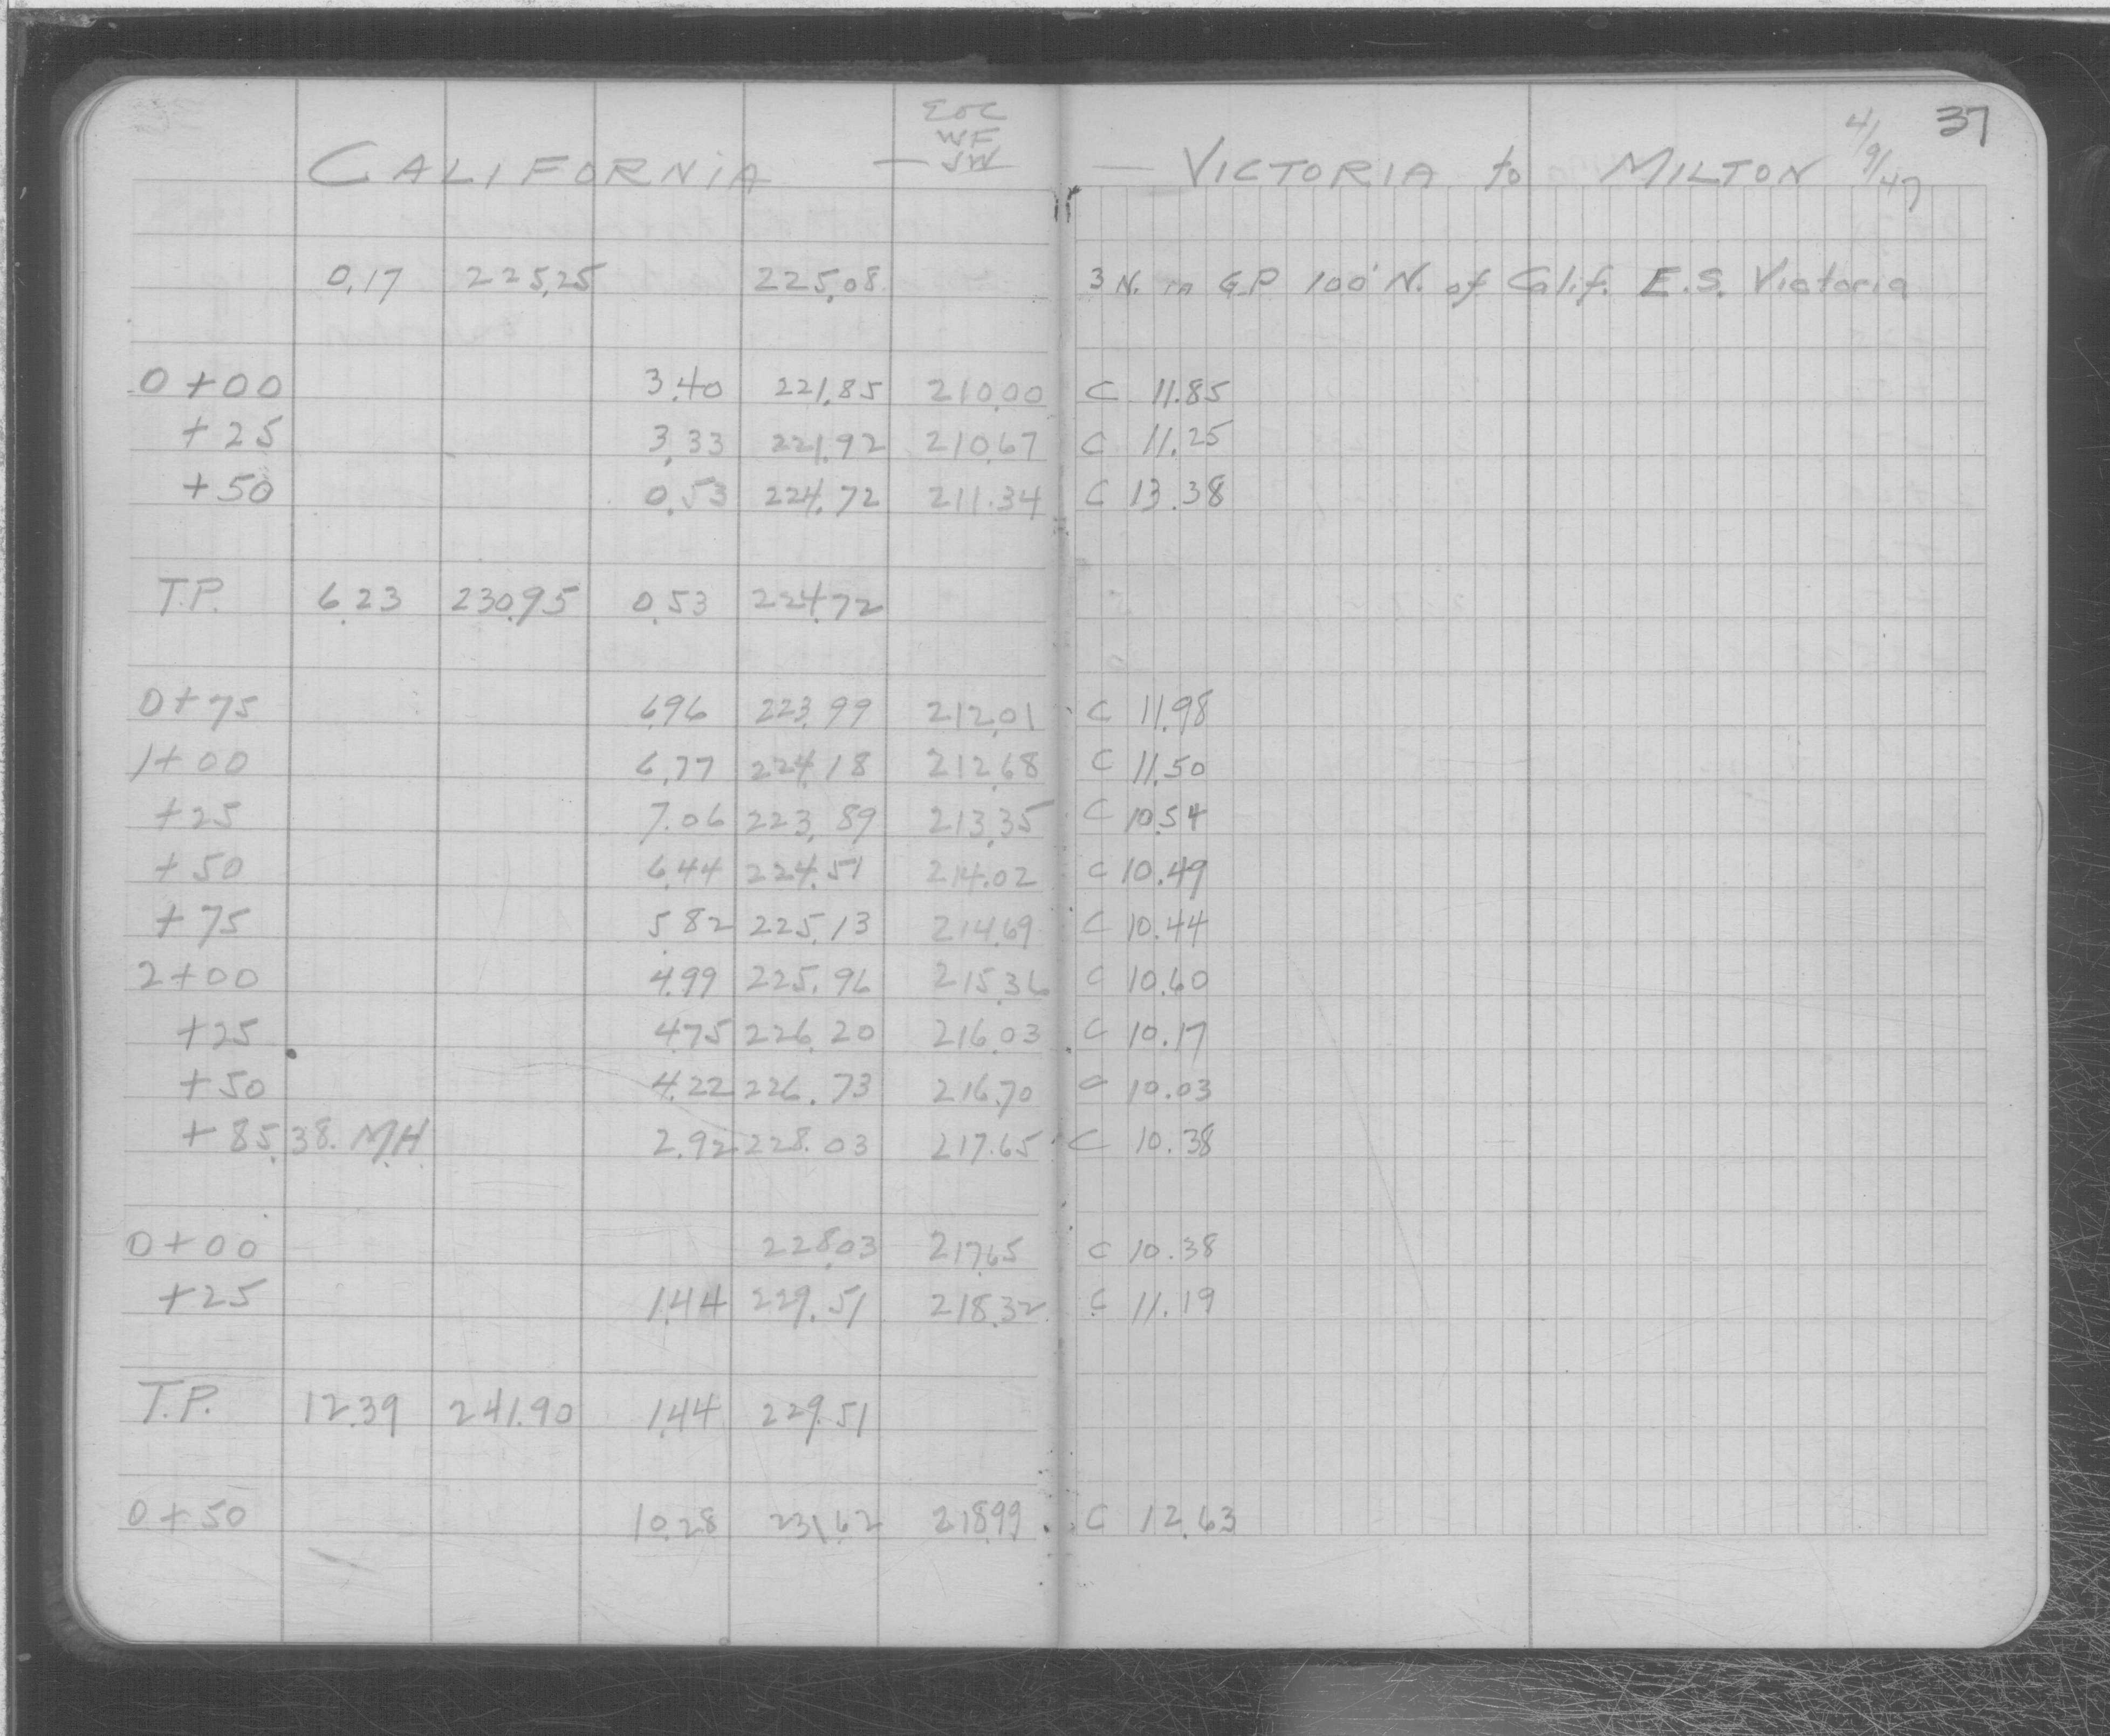 37
EOC
WF
JW
4/9/47
CALIFORNIA — — VICTORIA to MILTON
0.17 225.25 225.08 3 N. in G.P. 100' N. of Calif. E.S. Victoria
0+00 3.40 221.85 210.00 C 11.85
+25 3.33 221.92 210.67 C 11.25
+50 0.53 224.72 211.34 C 13.38
T.P. 6.23 230.95 0.53 224.72
0+75 6.96 223.99 212.01 C 11.98
1+00 6.77 224.18 212.68 C 11.50
+25 7.06 223.89 213.35 C 10.54
+50 6.44 224.51 214.02 C 10.49
+75 5.82 225.13 214.69 C 10.44
2+00 4.99 225.96 215.36 C 10.60
+25 4.75 226.20 216.03 C 10.17
+50 4.22 226.73 216.70 C 10.03
+85.38. M.H. 2.92 228.03 217.65 C 10.38
0+00 228.03 217.65 C 10.38
+25 1.44 229.51 218.32 C 11.19
T.P. 12.39 241.90 1.44 229.51
0+50 10.28 231.62 218.99 C 12.63